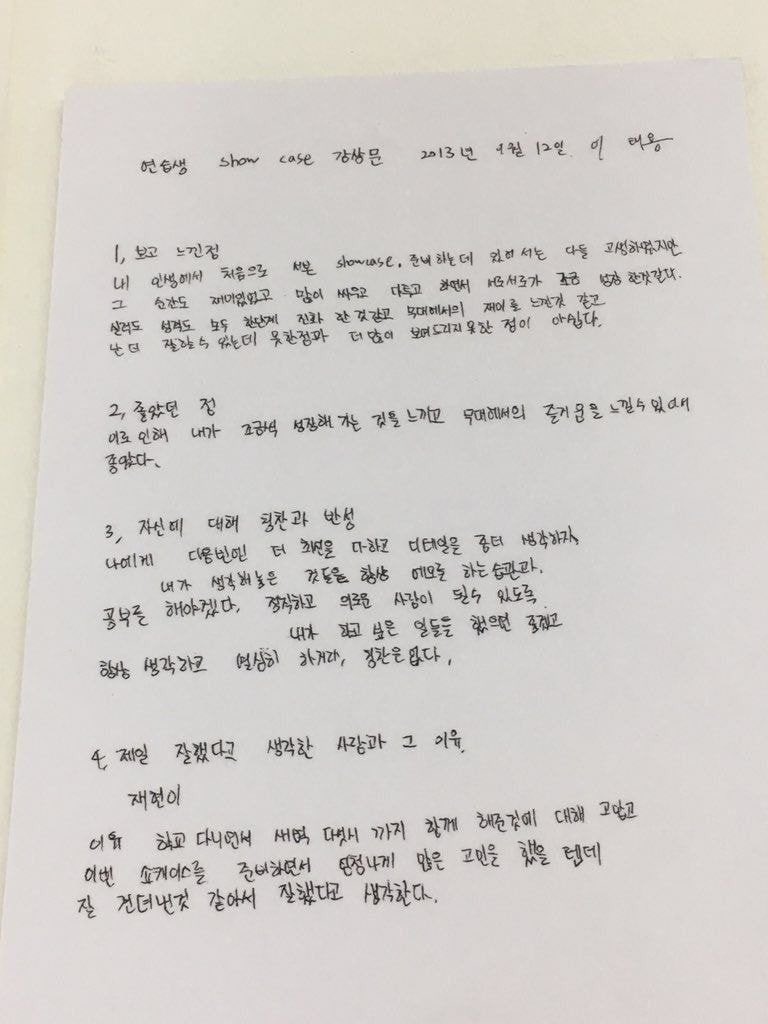 연습생 show case 감상문 2013년 9월 12일. 이 태용
1, 보고 느낀점
내 인생에서 처음으로 서본 showcase. 준비하는데 있어서는 다들 고생하였지만
그 순간도 재미있었고 많이 싸우고 다투고 하면서 서로서로가 조금 성장 한것같다.
실력도 성격도 모두 한단계 진화 한 것같고 무대에서의 재미를 느낀것 같고
난 더 잘할수 있는데 못한점과 더 많이 보여드리지 못한 점이 아쉽다.
2, 좋았던 점
이로 인해 내가 조금씩 성장해 가는 것을 느끼고 무대에서의 즐거움을 느낄수 있어서
좋았다.
3, 자신에 대해 칭찬과 반성
나에게 다음번엔 더 최선을 다하고 디테일을 좀더 생각하자,
내가 생각해놓은 것들을 항상 메모를 하는습관과.
공부를 해야겠다. 정직하고 의로운 사람이 될수 있도록
내가 하고 싶은 일들을 했으면 좋겠고
항상 생각하고 열심히 하거라, 칭찬은없다.
4, 제일 잘했다고 생각한 사람과 그 이유.
재현이
이유 학교 다니면서 새벽 다섯시 까지 함께 해준것에 대해 고맙고
이번 쇼케이스를 준비하면서 엄청나게 많은 고민을 했을 텐데
잘 견뎌낸것 같아서 잘했다고 생각한다.